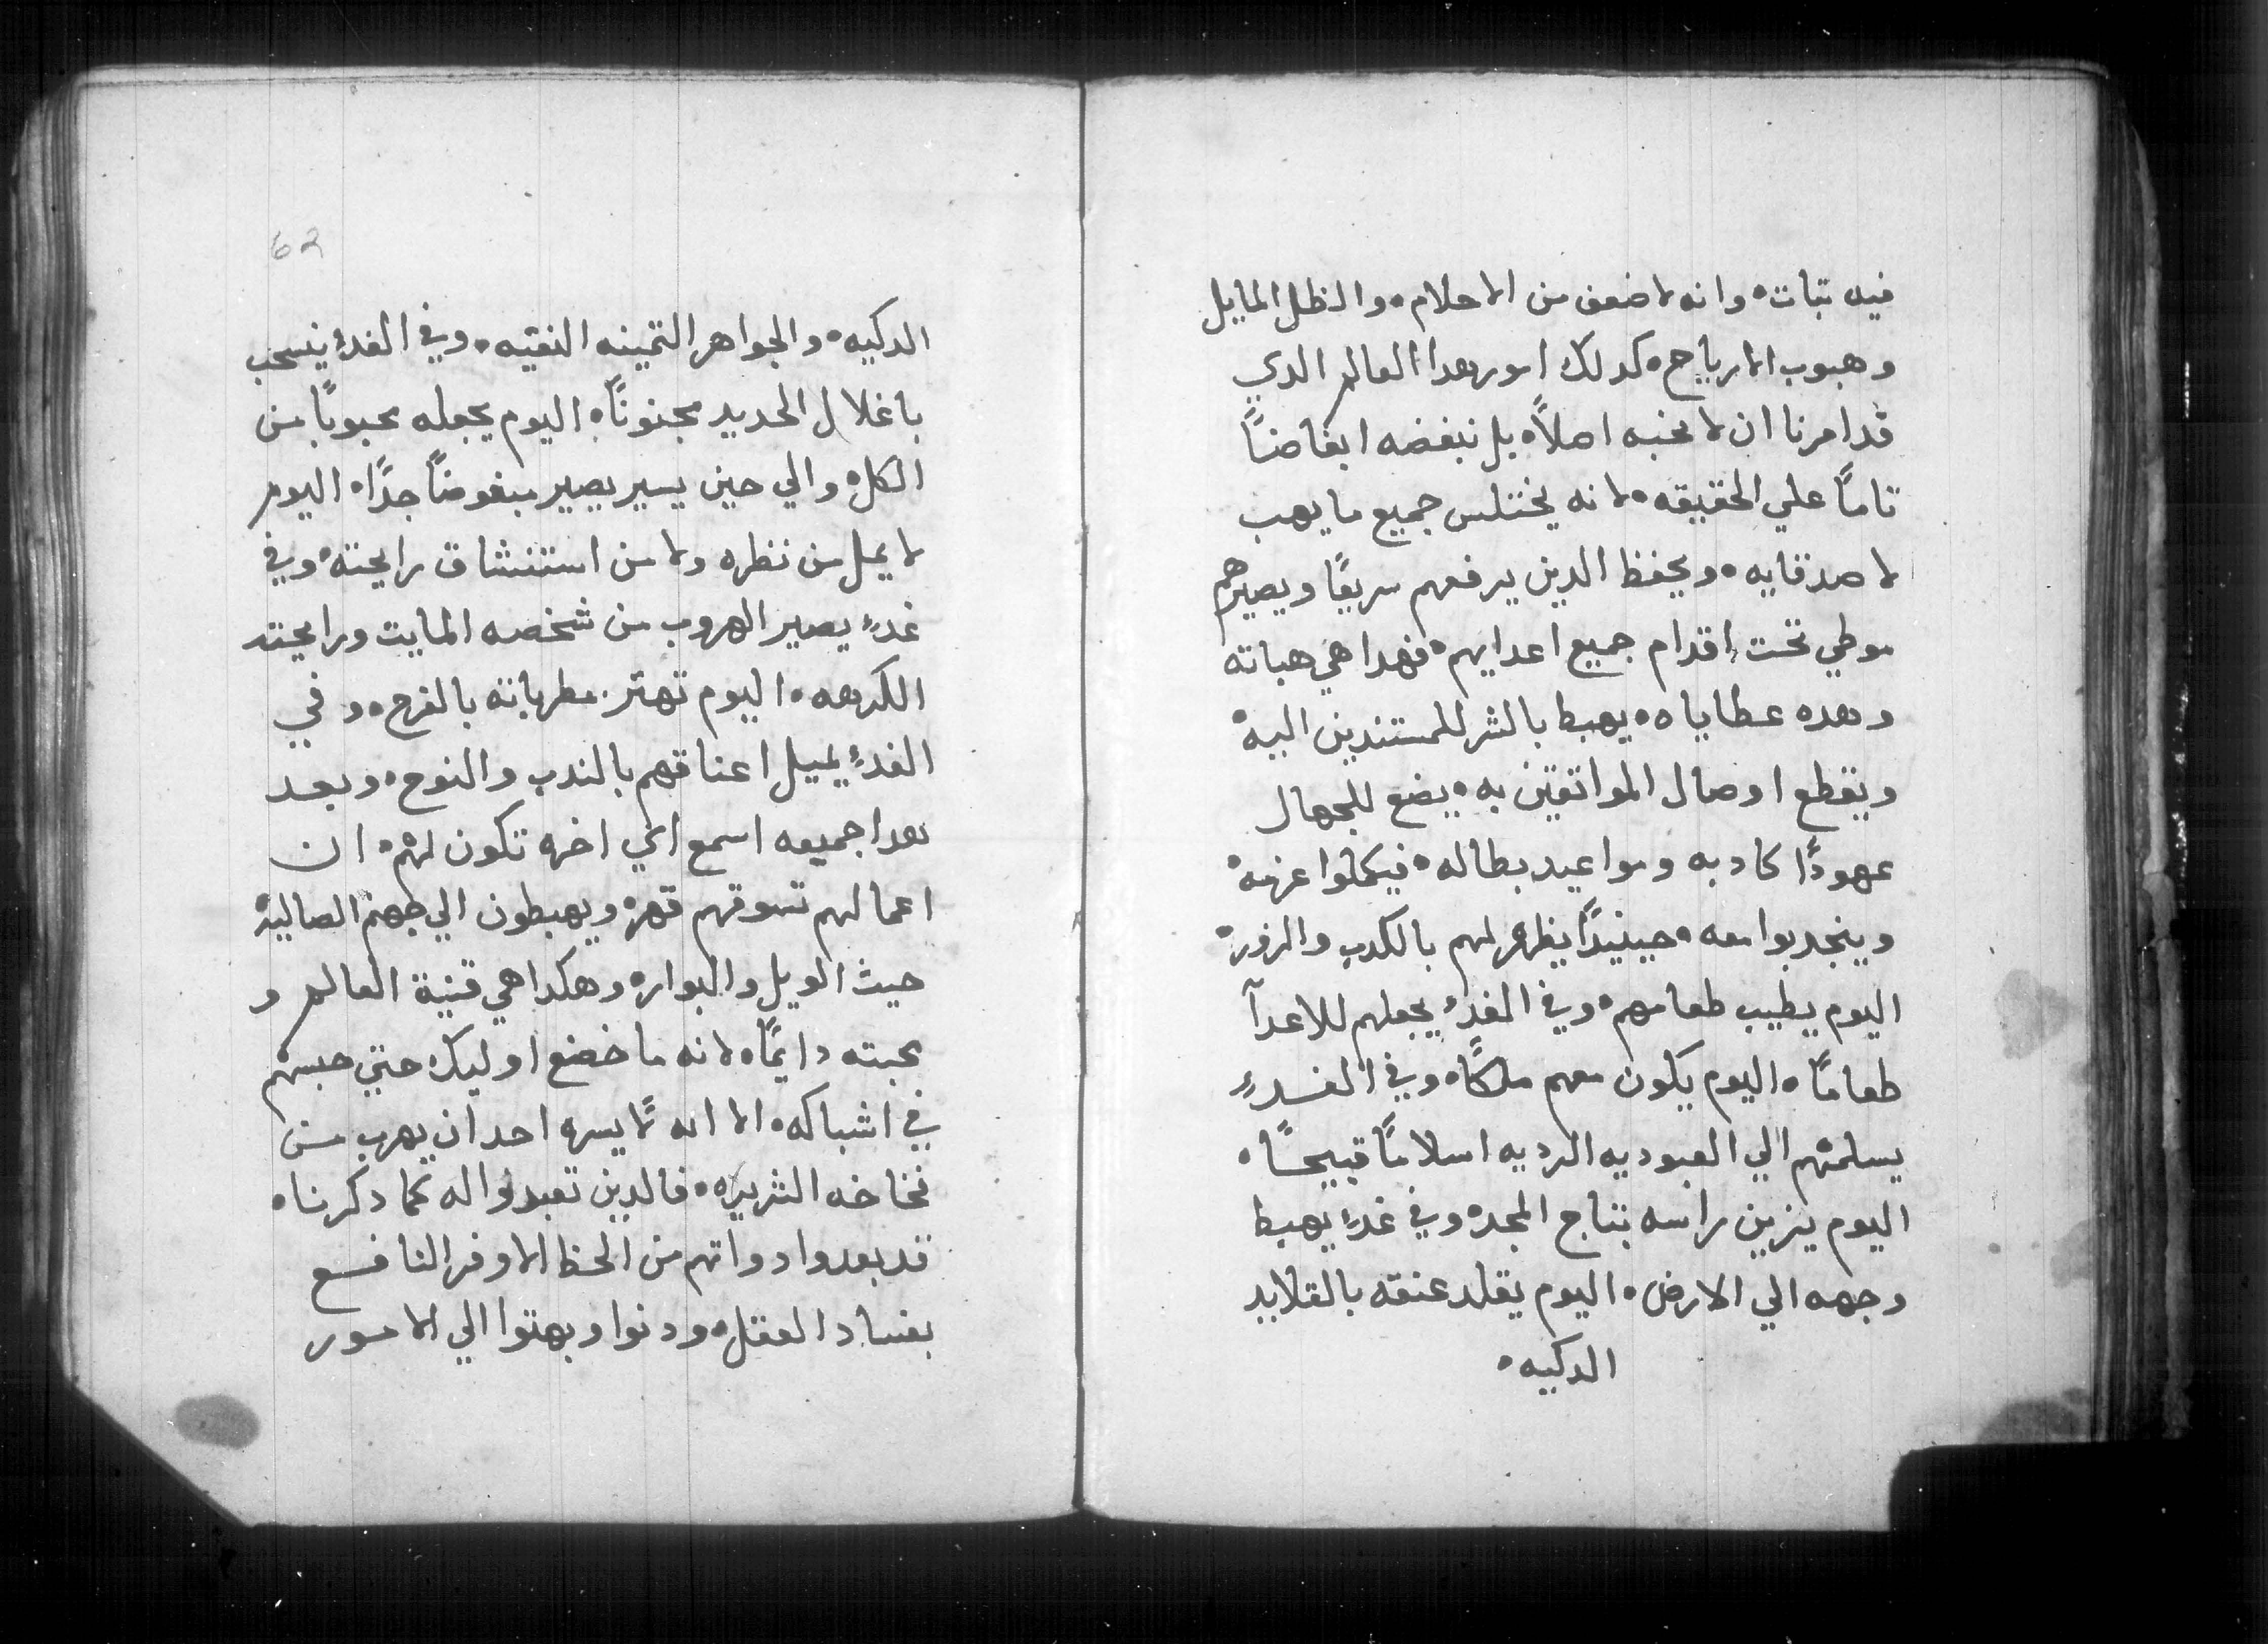 فيه تبات ه وانه لاضعف من الاحلام ه والظل المايل
وهبوب الارياح ه كدلك امور هدا العالم الدي
قدامرنا ان لا نحبه اصلاً ه بل نبغضه ابغاضاً
تاماً علي الحقيقه ه لانه يختلس جميع ما يهب
لاصدقايه ه ويحفظ الدين يرفعهم سريعًا ويصيرهم
موطي تحت اقدام جميع اعدايهم ه فهدا هي هباته
وهده عطاياه ه يهبط بالشر للمستندين اليه ه
ويقطع اوصال المواتقين به ه يضع للجهال
عهودًا كادبه ومواعيد بطاله ه فيكملوا عزمه ه
وينجدبوا معه ه حينيدًا يظهر لهم بالكدب والزور ه
اليوم يطيب طعامهم ه وفي الغدء يجعلهم للاعدآ
طعامًا ه اليوم يكون معهم ملكًا ه وفي الغدء
يسلمهم الي العبوديه الرديه اسلامًا قبيحًا ه
اليوم يزين راسه بتاج المجد ه وفي غدءٍ يهبط
وجهه الي الارض ه اليوم يقلد عنقه بالقلايد
الدكيه ه
62
الدكيه ه والجواهر التمينه النقيه ه وفي الغدء ينسحب
باغلال الحديد مجنونًا ه اليوم يجعله محبوبًا من
الكل ه والي حين يسير يصير مبغوضًا جدًا ه اليوم
لا يمل من نظره ولا من استنشاق رايحته ه وفي
غدءٍ يصير الهروب من شخصه المايت ورايحته
الكرهه ه اليوم تهتز مطرباته بالفرح ه وفي
الغدءٍ يميل اعناقهم بالندب والنوح ه وبعد
هدا جميعه اسمع اي اخره تكون لهم ه ان
اعمالهم تسوقهم قهرة ويهبطون الي جهنم الصاليه ه
حيث الويل والبوار ه وهكدا هي قنية العالم و
محبته دايمًا ه لانه ما خضع اوليك حتي حبسهم
في اشباكه ه الا انه لما يسره احد ان يهرب من
فخاخه الشريره ه فالدين تعبدوا له كما دكرنا ه
قد بعدوا دواتهم من الحظ الاوفر النافع
بفساد العقل ه ودنوا وبهتوا الي الامور